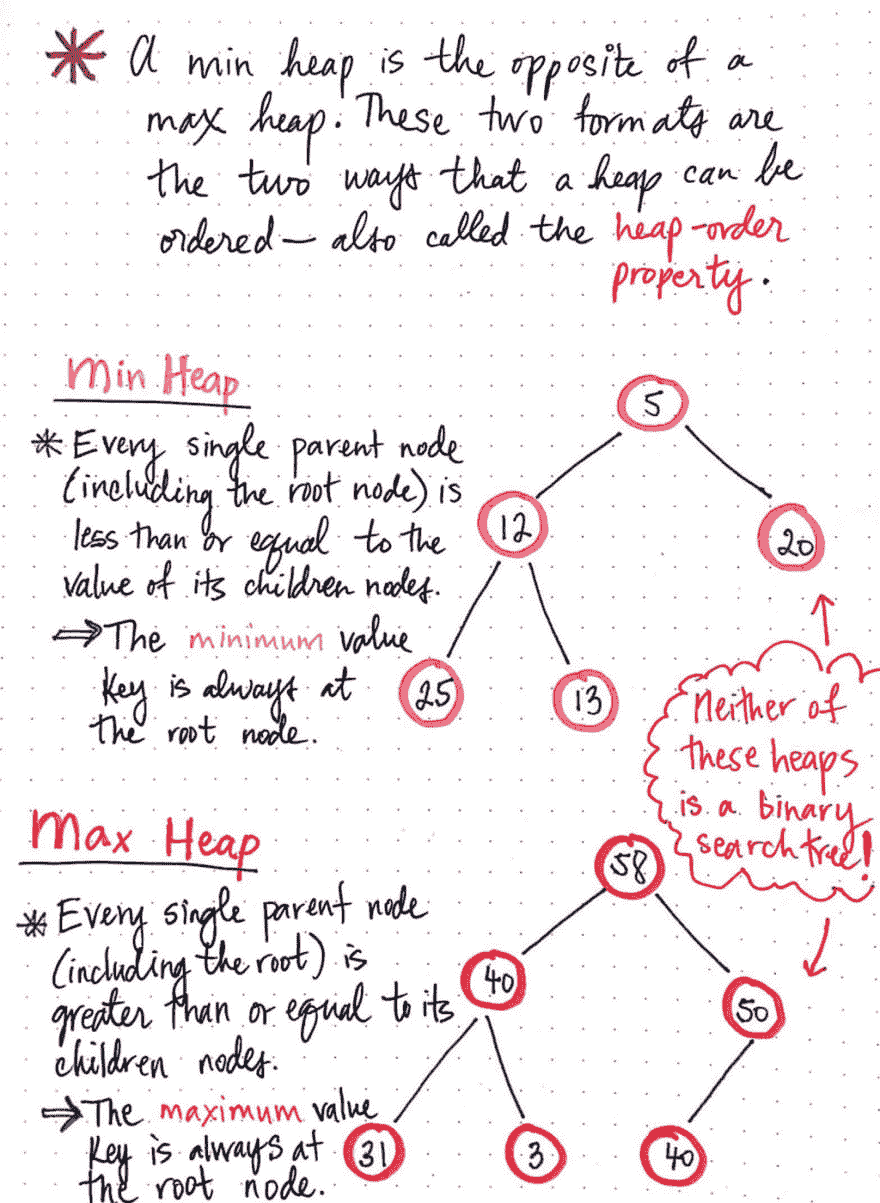 * A min heap is the opposite of a
max heap. These two formats are
the two ways that a heap can be
ordered — also called the heap-order
property.
Min Heap
* Every single parent node
(including the root node) is
less than or equal to the
value of its children nodes.
⇒ The minimum value
key is always at
the root node.
5
12
20
25
13
Neither of
these heaps
is a binary
search tree!
Max Heap
* Every single parent node
(including the root) is
greater than or equal to its
children nodes.
⇒ The maximum value
key is always at
the root node.
58
40
50
31
3
40